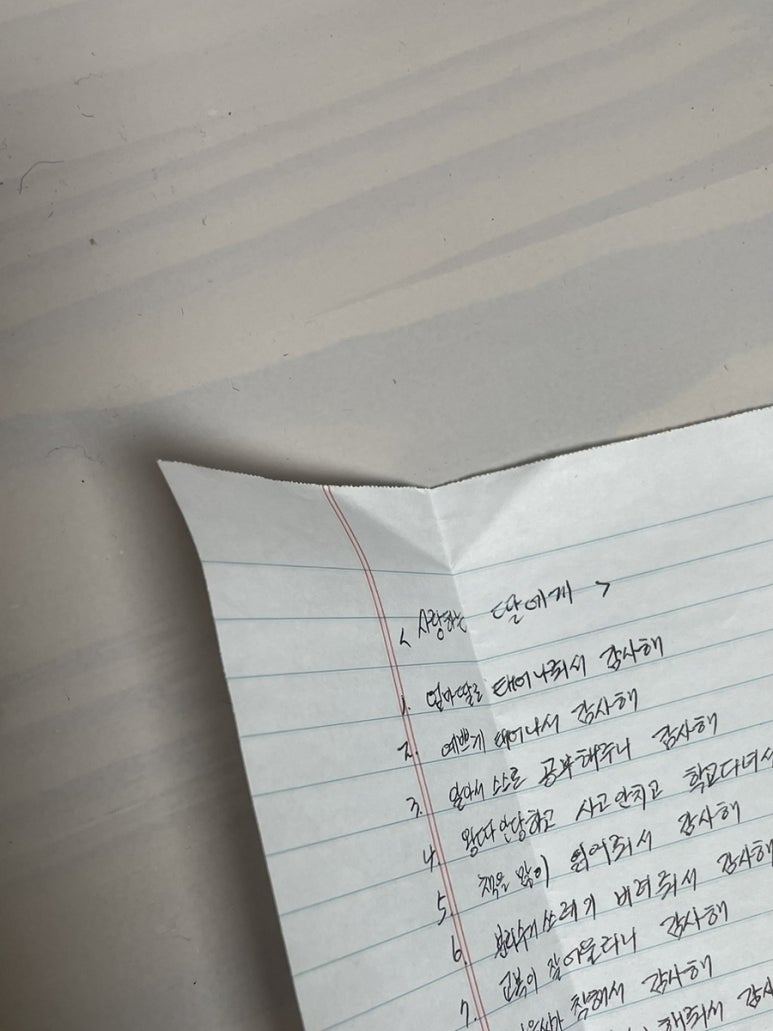 < 사랑하는 딸에게 >
1. 엄마딸로 태어나줘서 감사해
2. 예쁘게 태어나서 감사해
3. 알아서 스스로 공부해주니 감사해
4. 왕따 안당하고 사고안치고 학교다녀서
5. 책을 많이 읽어줘서 감사해
6. 분리수거 쓰레기 버려줘서 감사해
7. 교복이 잘어울리니 감사해
참해서 감사해
해줘서 감사